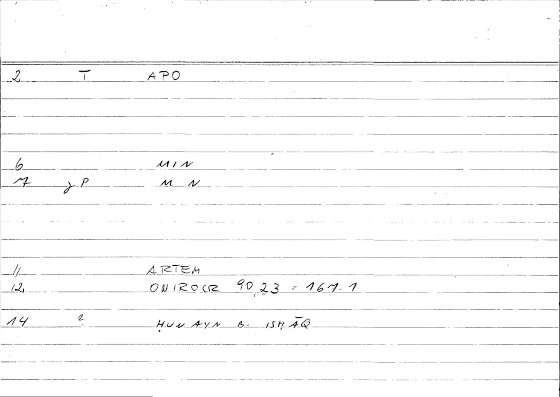 2 T APO
6 MIN
7 γP M N
11 ARTEM
12 ONIROCR 90,23 = 167.1
14 2 ḤUNAYN B. ISḤĀQ